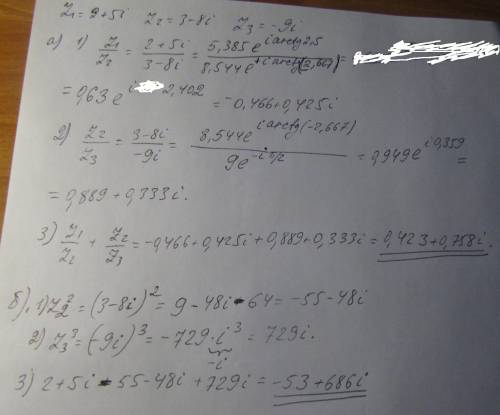 z₁ = 2+5i   z₂ = 3-8i   z₃ = -9i
а) 1) z₁/z₂ = (2+5i)/(3-8i) = 5,385e^(i arctg 2,5) / 8,544e^(+i arctg(2,667)) =
= 0,63e^(i 2,402) = -0,466+0,425i
2) z₂/z₃ = (3-8i)/(-9i) = 8,544e^(i arctg(-2,667)) / 9e^(-iπ/2) = 0,949e^(i 0,359) =
= 0,889+0,333i.
3) z₁/z₂ + z₂/z₃ = -0,466+0,425i+0,889+0,333i = 0,423+0,758i.
б). 1) z₂² = (3-8i)² = 9-48i-64 = -55-48i
2) z₃³ = (-9i)³ = -729·i³ = 729i.
-i
3) 2+5i-55-48i+729i = -53+686i